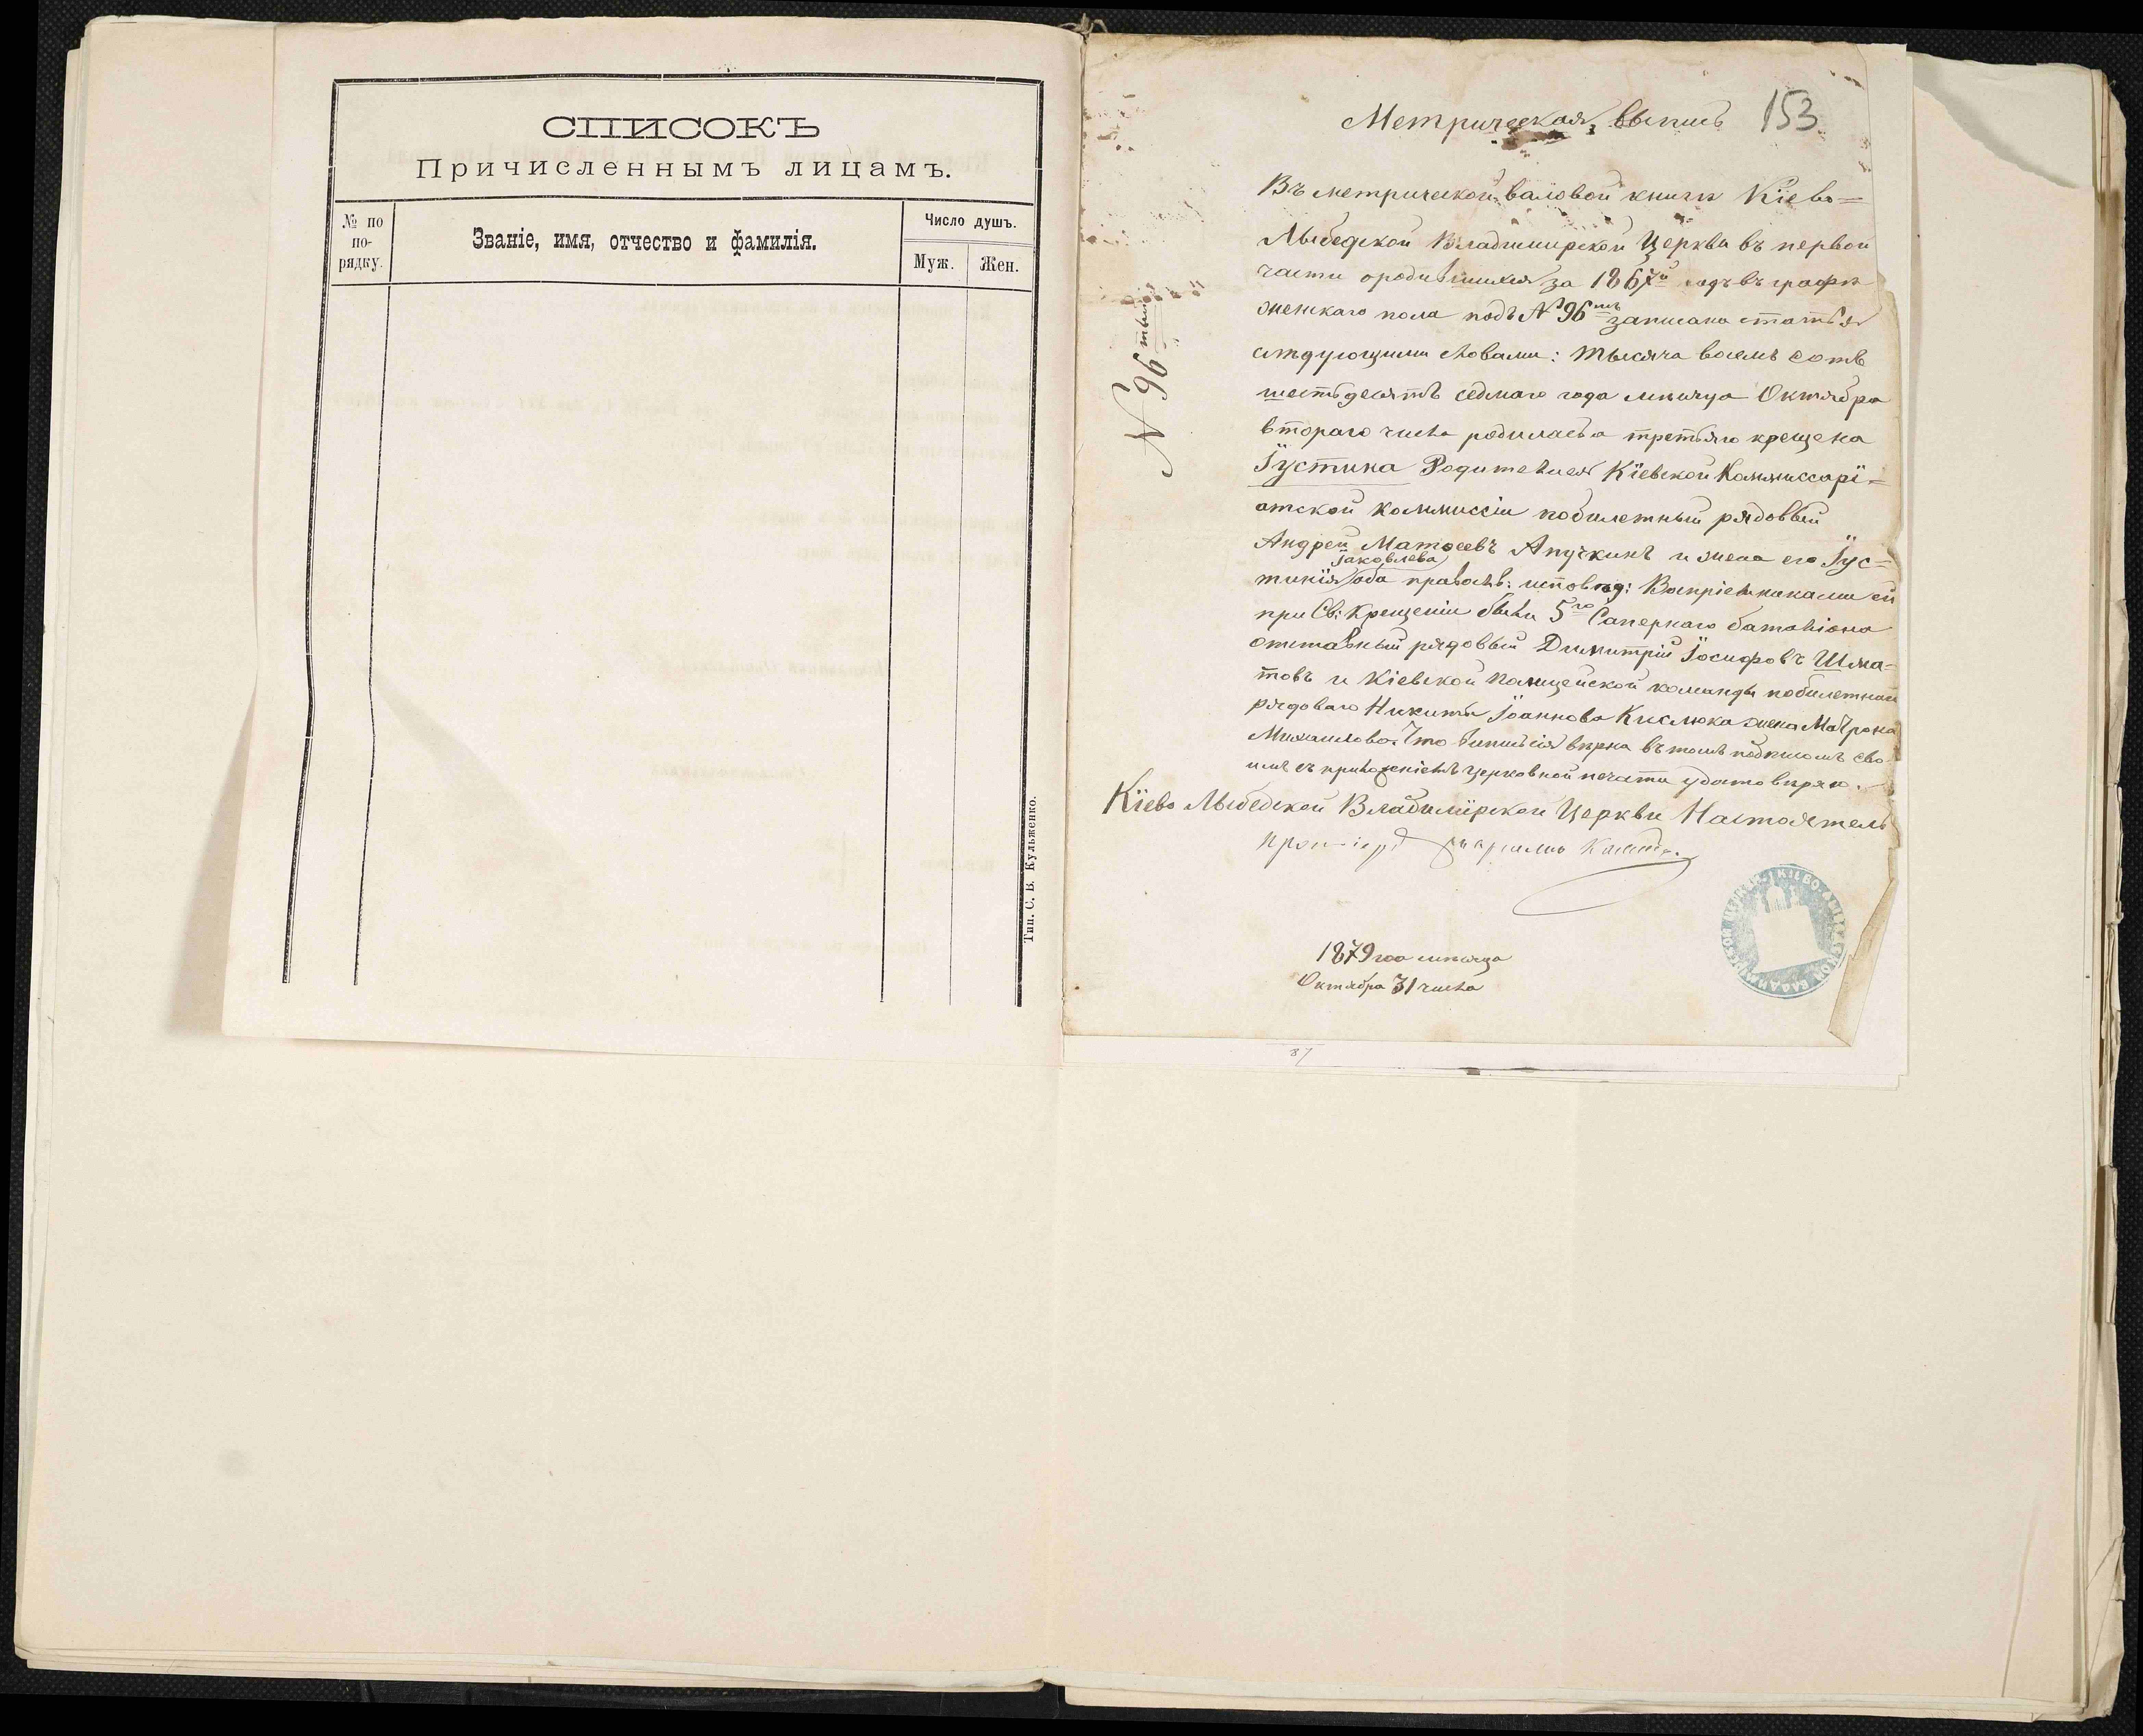 СПИСОКЪ
Причисленнымъ лицамъ.
№ по
по-
рядку.
Званіе, имя, отчество и фамилія.
Число душъ.
Муж.
Жен.
Тип. С. В. Кульженко.
Метрическая выпись 153
Въ метрической валовой книги Кіево=
Лыбедской Владимирской Церкви въ первой
части о родившихся за 1867й годъ въ графѣ
женскаго пола подъ № 96мъ записана статья
слѣдующими словами: тысяча восемъ сотъ
шестьдесятъ седмаго года мѣсяца Октября
втораго числа родилась а третьяго крещена
Їустина Родители ея Кіевской Коммиссарі=
атской коммиссіи побилетный рядовый
Андрей Матѳеевъ Апучкинъ и жена его Їус=
Їаковлева
тинія оба правосл: исповѣд: Воспріемниками ей
при Св: Крещеніи были 5го Сапернаго баталіона
отставный рядовый Димитрій Їосифовъ Шма-
товъ и Кіевской Полицейской команды побилетнаго
рядоваго Никиты Їоаннова Кислюка жена Матрона
Михаилова. Что выпись сія вѣрна въ томъ подписомъ сво-
имъ съ приложеніемъ церковной печати удостовѣряю.
Кіево Лыбедской Владимірской Церкви Настоятель
№ 96 тый
1879 года мѣсяца
Октября 31 числа
87